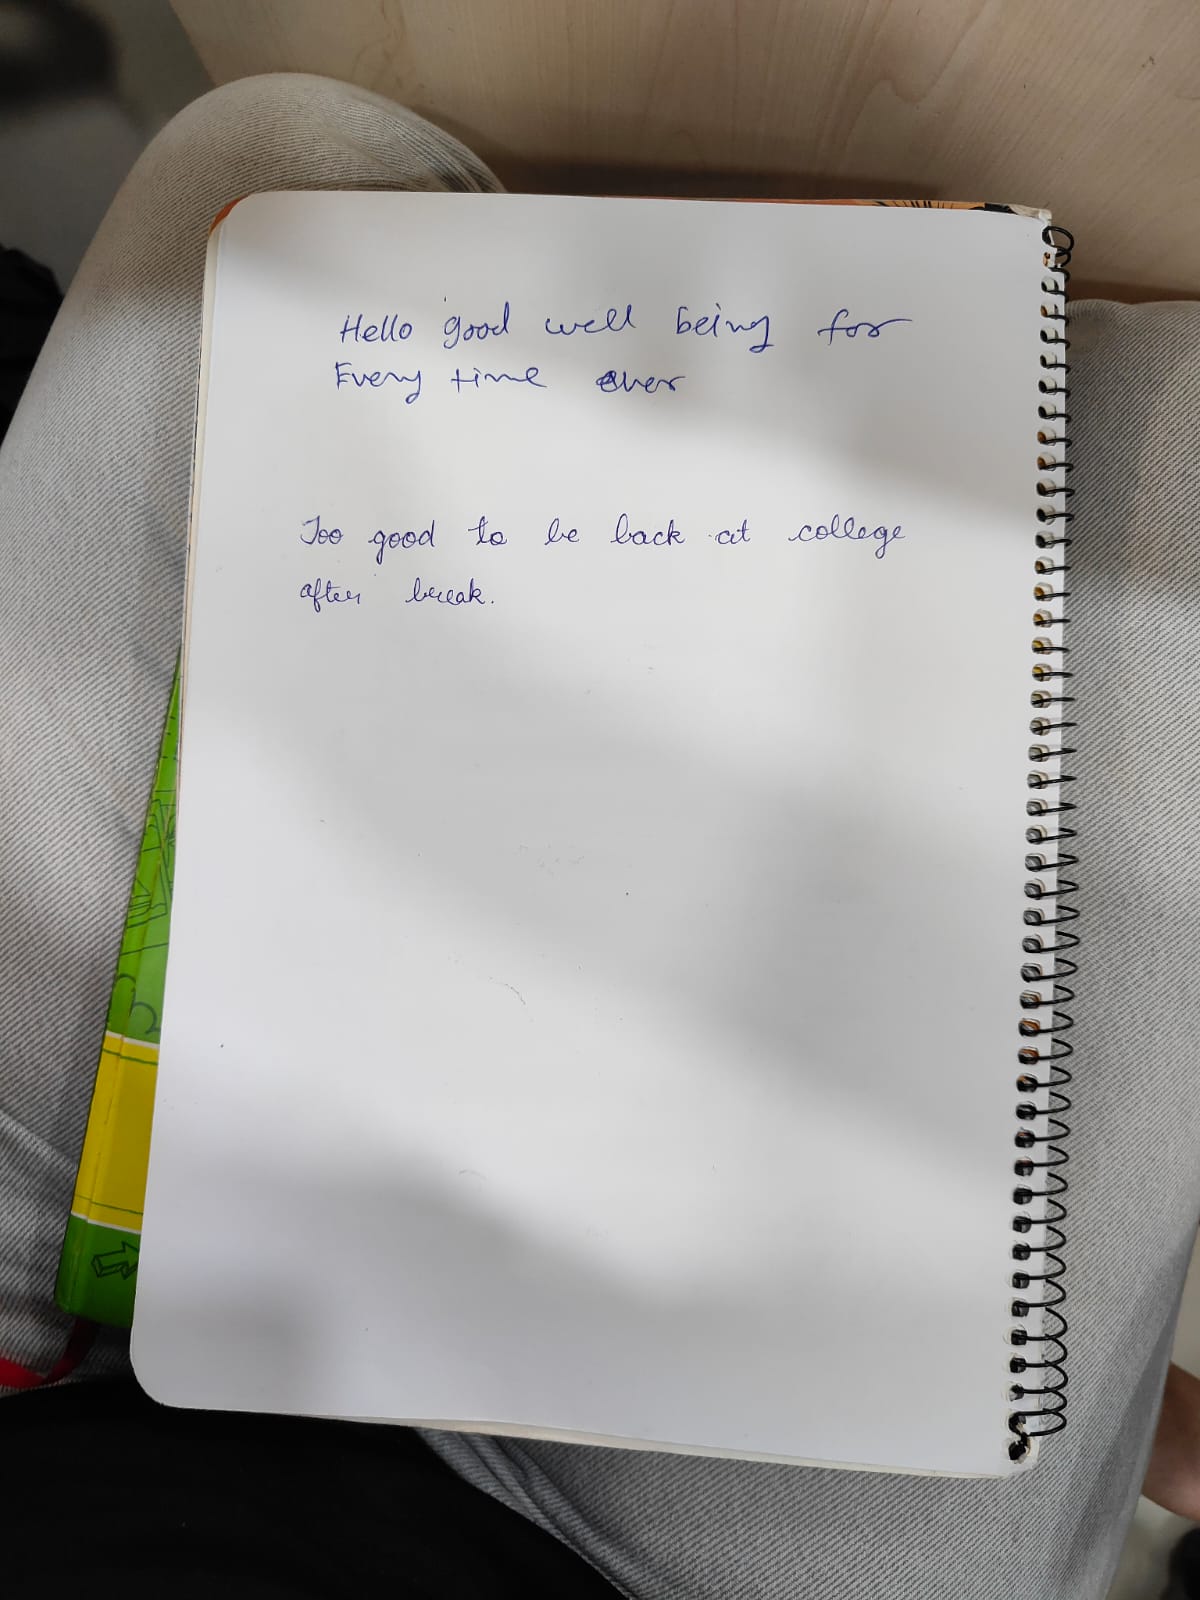 Hello good well being for
Every time ever
Too good to be back at college
after break.